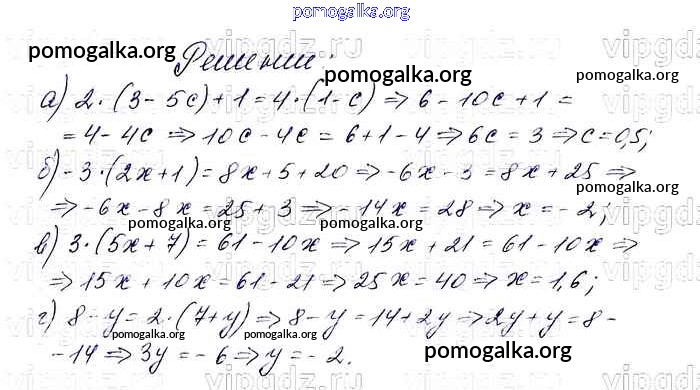 pomogalka.org
Решение:
pomogalka.org
pomogalka.org
а) 2·(3-5c)+1=4·(1-c) ⇒ 6-10c+1=
=4-4c ⇒ 10c-4c=6+1-4 ⇒ 6c=3 ⇒ c=0,5;
pomogalka.org
б) -3·(2x+1)=8x+5+20 ⇒ -6x-3=8x+25 ⇒
pomogalka.org
⇒ -6x-8x=25+3 ⇒ -14x=28 ⇒ x=-2;
pomogalka.org
pomogalka.org
в) 3·(5x+7)=61-10x ⇒ 15x+21=61-10x ⇒
⇒ 15x+10x=61-21 ⇒ 25x=40 ⇒ x=1,6;
г) 8-y=2·(7+y) ⇒ 8-y=14+2y ⇒ 2y+y=8-
pomogalka.org
pomogalka.org
-14 ⇒ 3y=-6 ⇒ y=-2.
pomogalka.org
vipgdz.ru